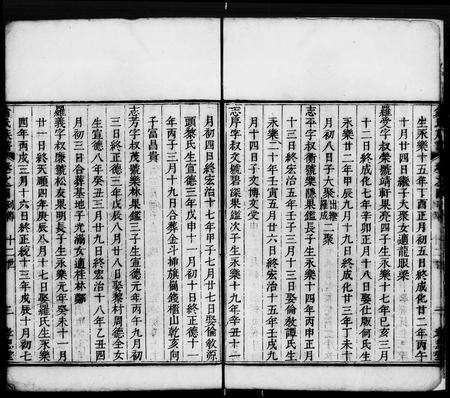 生永樂十五年丁酉正月初五日終成化廿二年丙午
十月廿四日繼子大聚女適龍眼梁
羅受字叔榮號靖軒果亮四子生永樂十七年己亥三月
十二日終成化七年辛卯正月十八日娶仕版何氏生
永樂廿二年甲辰九月十九日終成化廿三年丁未十
月初八日子大聚出繼大成二聚
志平字叔衡號樂隱果鑑長子生永樂十四年丙申正月
十三日終宏治五年壬子三月十三日娶倫教譚氏生
永樂二十年壬寅五月廿六日終宏治十五年壬戌九
月十四日子文博文受
志厚字叔文號碧溪果鑑次子生永樂十九年辛丑十一
月初四日終宏治十七年甲子七月廿七日娶倫敦源
頭黎氏生宣德三年戊申十一月初十日終正德十一
年丙子三月十九日合葬金斗插旗崗錢樣山乾亥向
子富昌貴
志芳字叔茂號樂林果鑑三子生宣德元年丙午九月初
三日終正德三年戊辰八月廿八日娶黎村周德全女
生宣德八年癸丑三月廿九日終宏治十八年乙丑四
月初三日合葬基地子光滿女適桂林鄺
羅義字叔廉號松友果明長子生永樂元年癸未十一月
廿一日終天順四年庚辰八月十七日娶羅氏生永樂
四年丙戌三月十六日終正統十三年戊辰十月初七